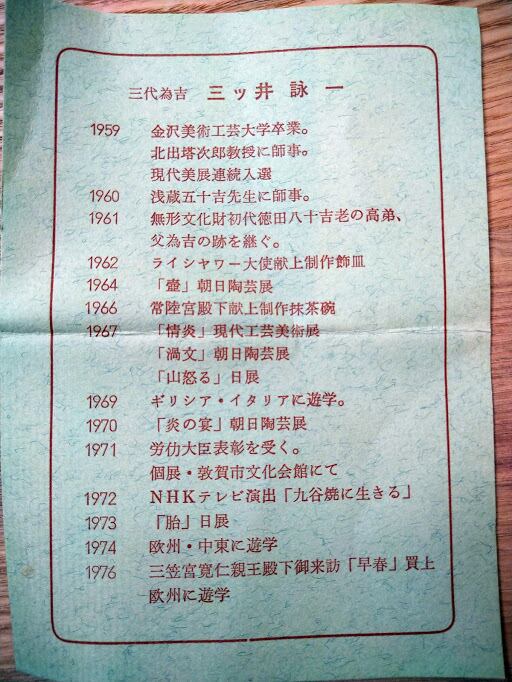 三代為吉 三ッ井 詠 一
1959 金沢美術工芸大学卒業。
北出塔次郎教授に師事。
現代美展連続入選
1960 浅蔵五十吉先生に師事。
1961 無形文化財初代徳田八十吉老の高弟、
父為吉の跡を継ぐ。
1962 ライシャワー大使献上制作飾皿
1964 「壺」朝日陶芸展
1966 常陸宮殿下献上制作抹茶碗
1967 「情炎」現代工芸美術展
「渦文」朝日陶芸展
「山怒る」日展
1969 ギリシア・イタリアに遊学。
1970 「炎の宴」朝日陶芸展
1971 労仂大臣表彰を受く。
個展・敦賀市文化会館にて
1972 NHKテレビ演出「九谷焼に生きる」
1973 『胎」日展
1974 欧州・中東に遊学
1976 三笠宮寛仁親王殿下御来訪「早春」買上
欧州に遊学